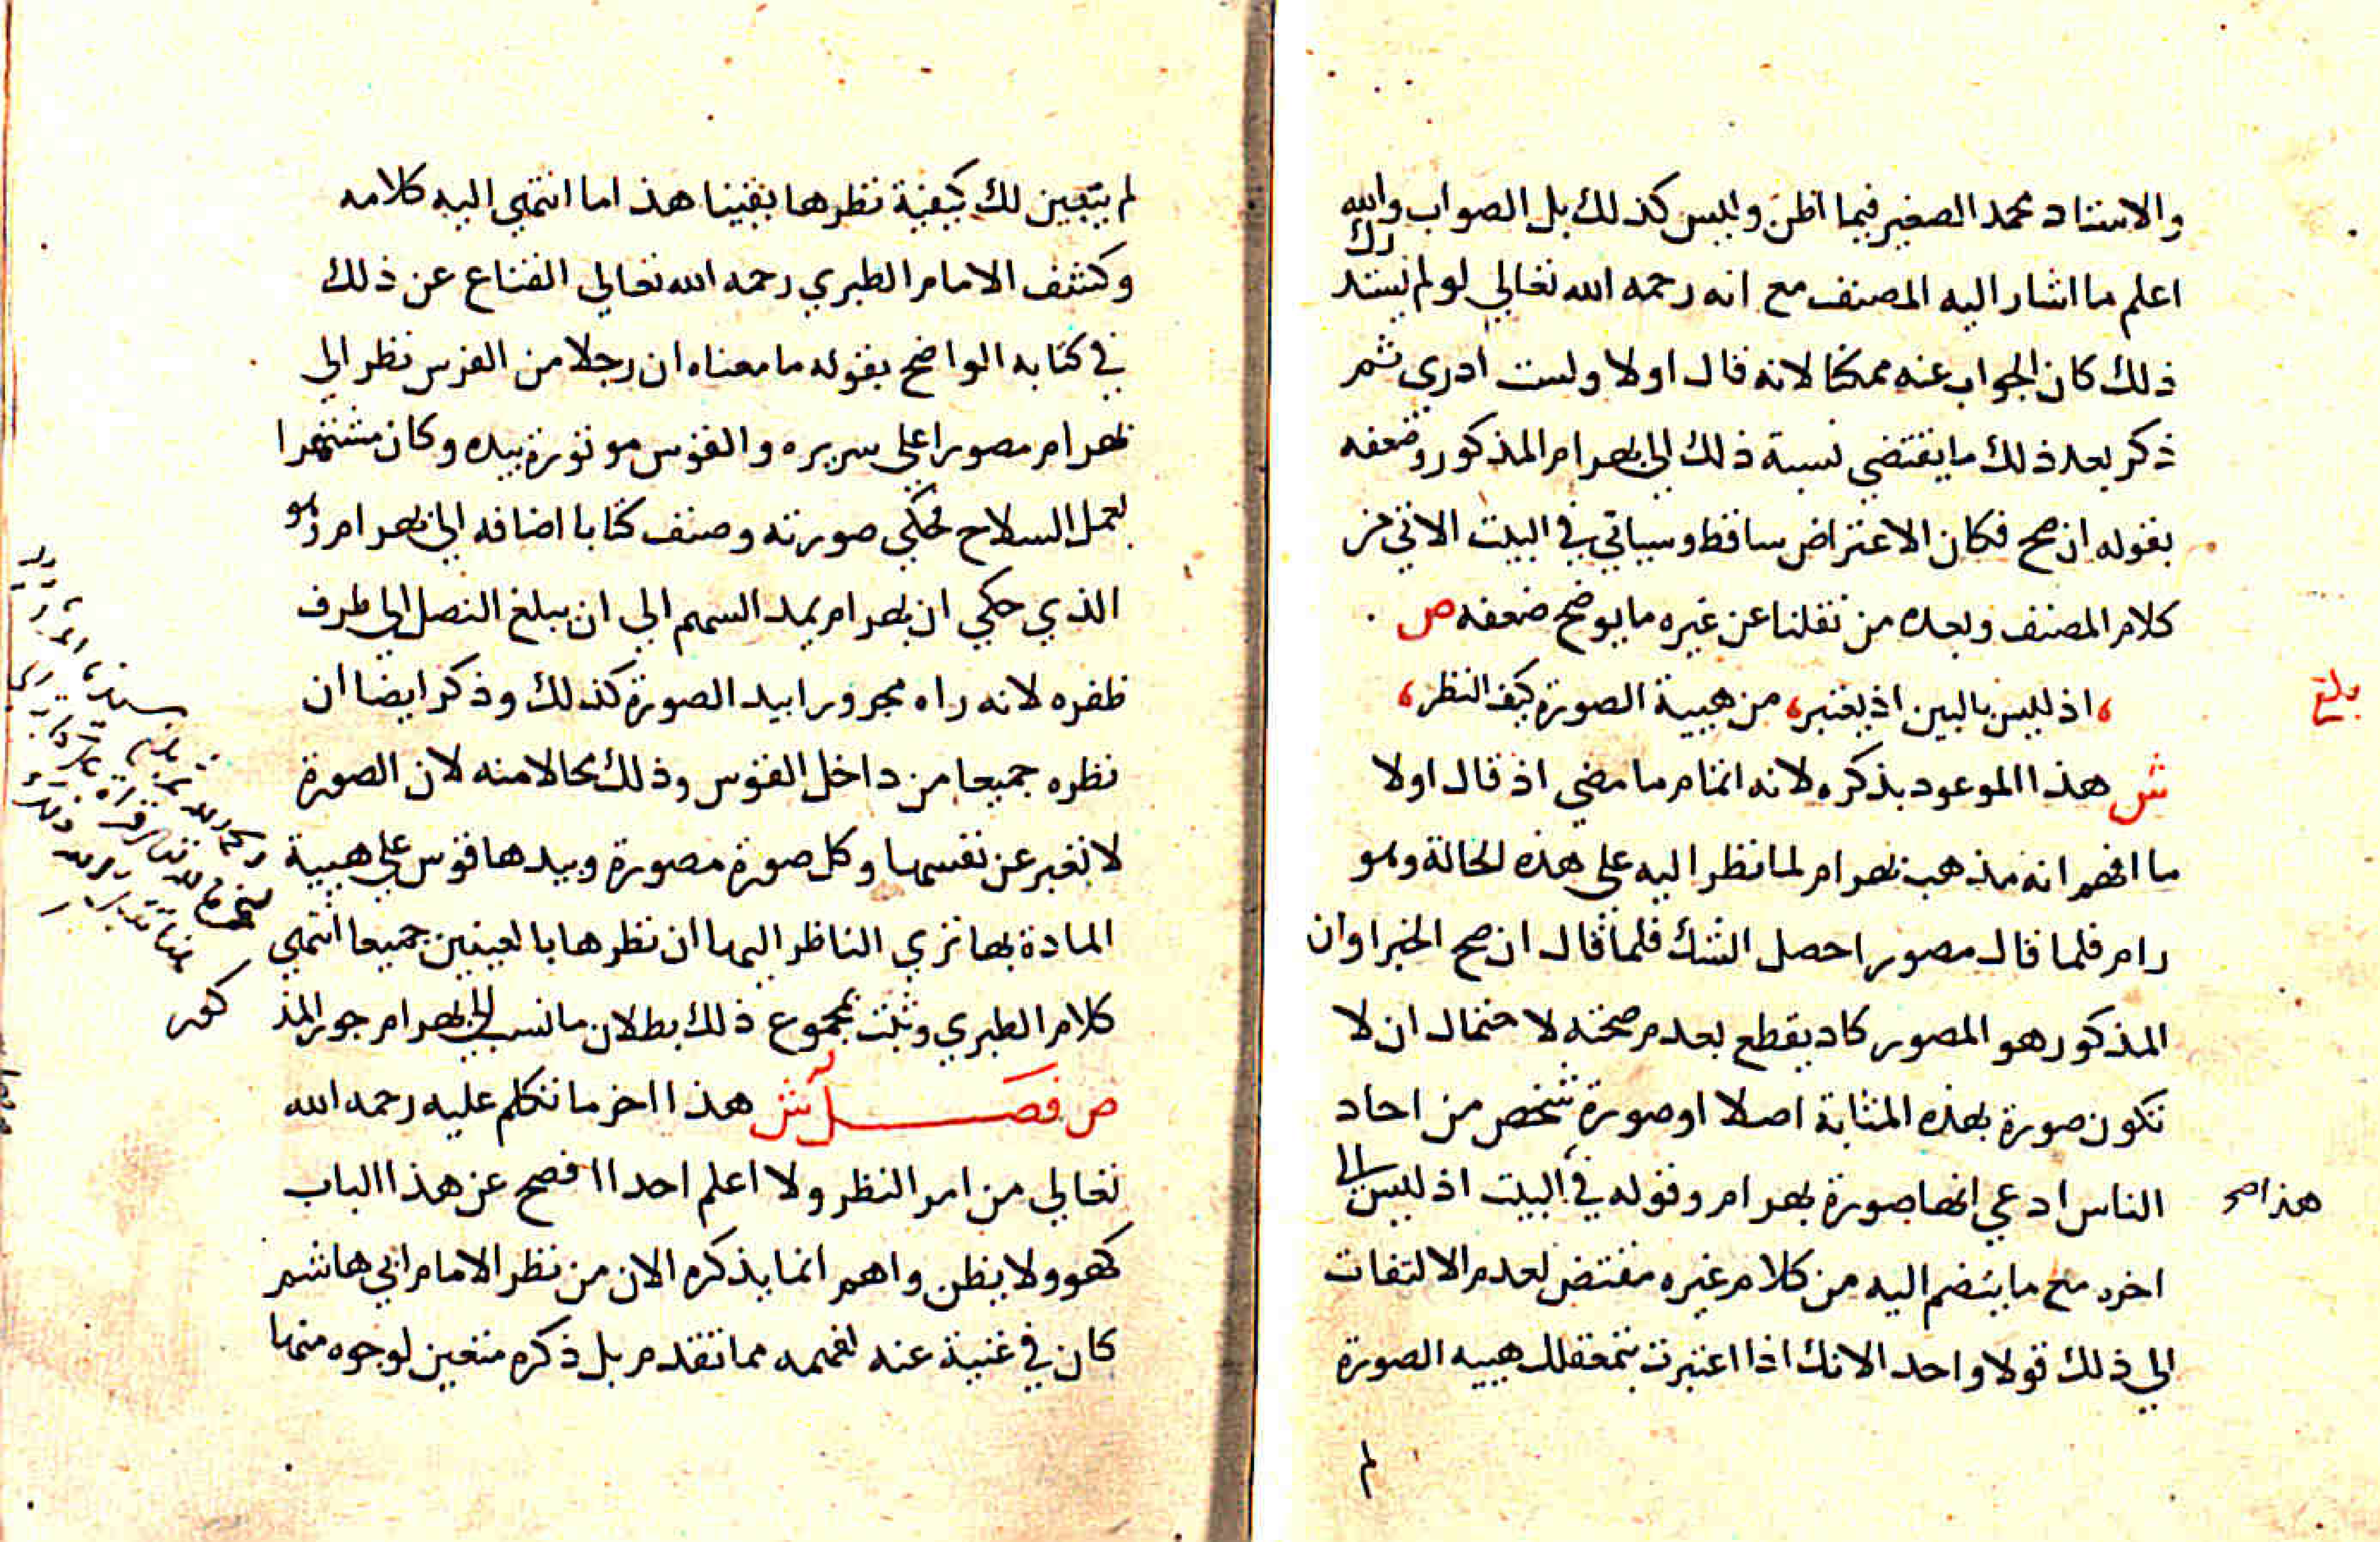 والاستاد محمد الصغير فيما اظن وليس كذلك بل الصواب والله
اعلم ما اشار اليه المصنف مع انه رحمه الله تعالي لو لم يستدرك
ذلك كان الجواب عنه ممكنا لانه قال اولا ولست ادري ثم
ذكر بعد ذلك ما يقتضي نسبة ذلك الي بهرام المذكور وضعفه
بقوله ان صح فكان الاعتراض ساقطا وسياتي في البيت الاتي من
كلام المصنف وبعده من نقلنا عن غيره ما يوضح ضعفه ص
اذ ليس بالبين اذ يعتبر، من هيية الصورة كيف النظر،
بلغ
ش هذا الموعود بذكره لانه اتمام ما مضي اذ قال اولا
ما افهم انه مذهب بهرام لما نظر اليه علي هذه الحالة وهو
رام فلما قال مصورا حصل الشك فلما قال ان صح الخبر اوان
المذكور هو المصور كاد يقطع بعدم صحته لاحتمال ان لا
تكون صورة بهذه المثابة اصلا او صورة شخص من احاد
الناس ادعي انها صورة بهرام وقوله في البيت اذ ليس الي
هذا صح
اخره مع ما ينضم اليه من كلام غيره مقتض لعدم الالتفات
الي ذلك قولا واحدا لانك اذا اعتبرت بتمعقلك هيية الصورة
لم
لم يتبين لك كيفية نظرها يقينا هذا ما انتهي اليه كلامه
وكشف الامام الطبري رحمه الله تعالي القناع عن ذلك
في كتابه الواضح بقوله ما معناه ان رجلا من الفرس نظر الي
بهرام مصورا علي سريره والقوس موتورة بيده وكان مشتهرا
بعمل السلاح فحكي صورته وصنف كتابا اضافه الي بهرام وهو
الذي حكي ان بهرام يمد السهم الي ان يبلغ النصل الي طرف
ظفره لانه راه مجرورا بيد الصورة كذلك وذكر ايضا ان
نظره جميعا من داخل القوس وذلك محالا منه لان الصورة
لا تعبر عن نفسها وكل صورة مصورة وبيدها قوس علي هيية
المادة بها تري الناظر اليها ان نظرها بالعينين جميعا انتهي
كلام الطبري وثبت بمجموع ذلك بطلان ما نسب الي بهرام جور المذ
كور
ص فصل ش هذا اخر ما تكلم عليه رحمه الله
تعالي من امر النظر ولا اعلم احدا افصح عن هذا الباب
كهو ولا يظن واهم انما يذكره الان من نظر الامام ابي هاشم
كان في غنية عنه لفهمه مما تقدم بل ذكره متعين لوجوه منها